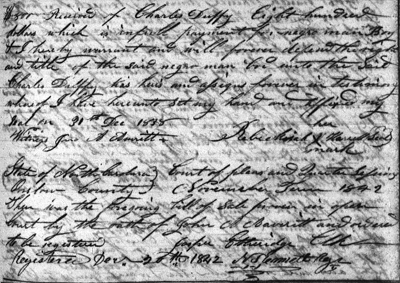 $800 Received of Charles Duffy Eight hundred
dollars which is in full payment for negro man Boy
I hereby warrant and will forever defend the right
and title of the said negro man unto the said
Charles Duffy his heirs and assigns forever in testimony
whereof I have hereunto set my hand and affixed my
seal on Dec 1838 her
Witness Jno. A. Averitt
mark
State of North Carolina Court of pleas and Quarter Sessions
Onslow County November Term 1842
Then was the foregoing bill of sale proven in open
Court by the oath of John A. Averitt and ordered
to be registered Jasper Etheridge Clk
Registered Dec. 20th 1842